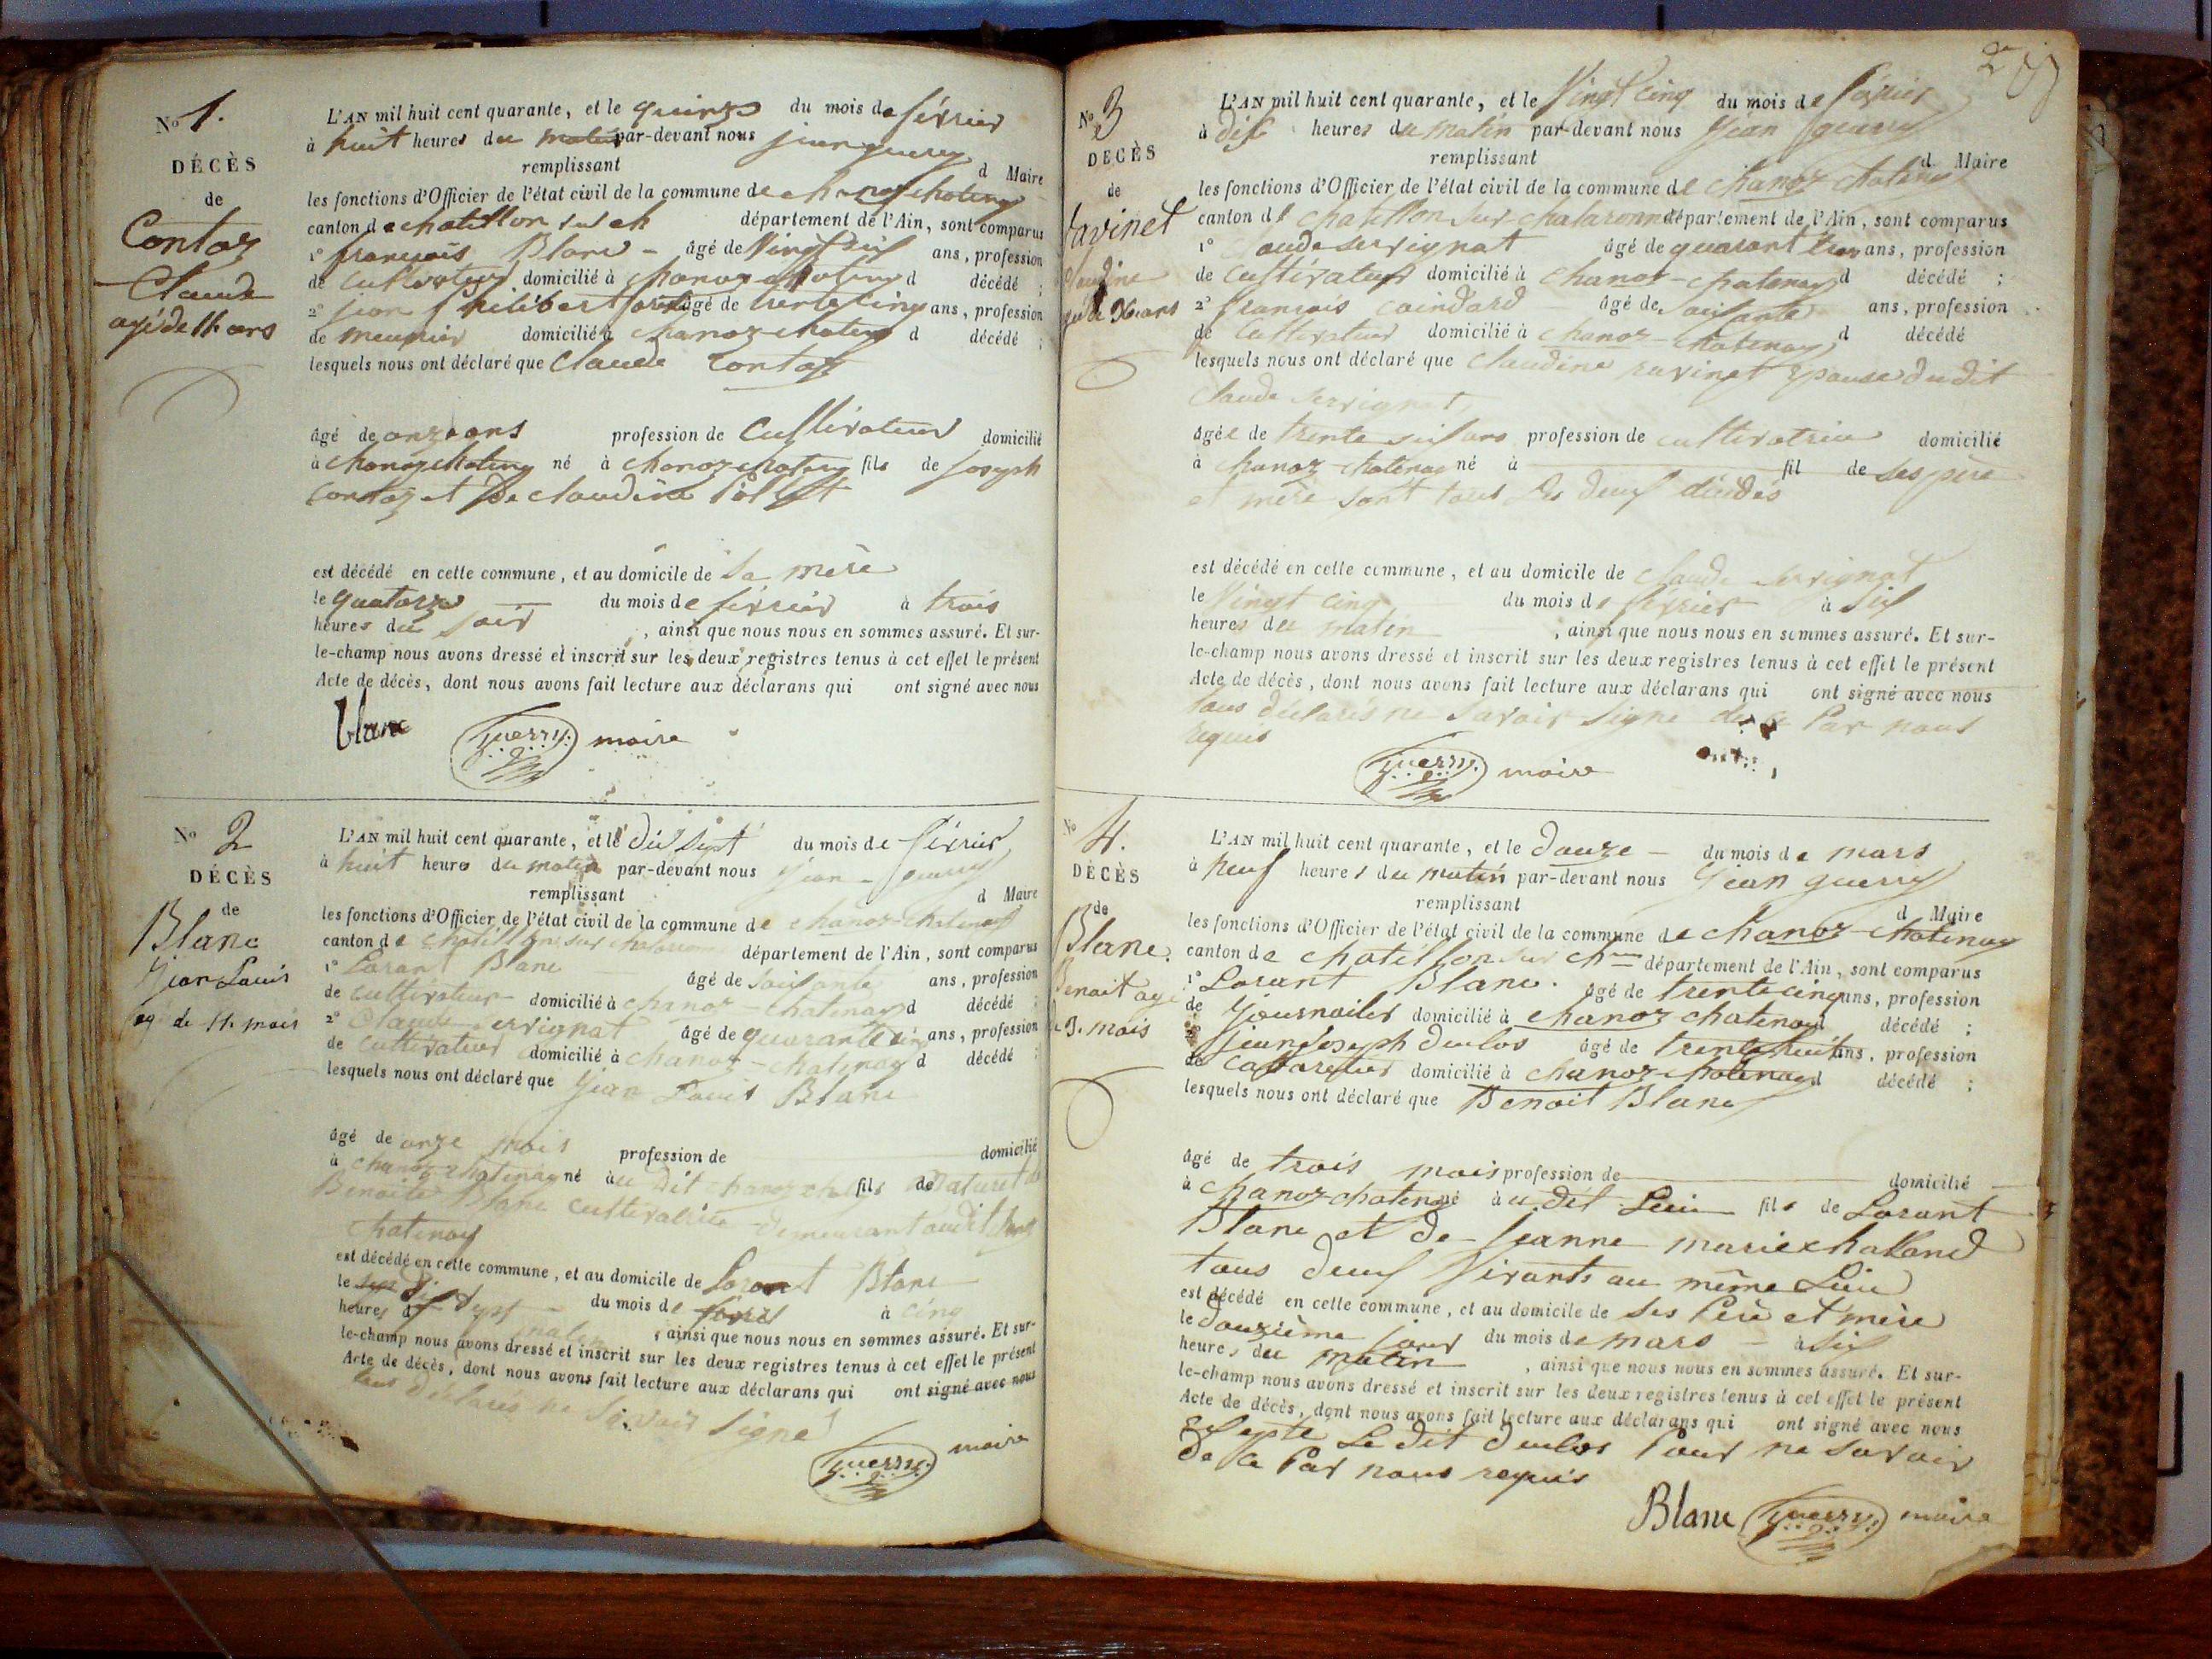 No 1.
DÉCÈS
de
Contoz
Claude
agé de 11 ans
L'AN mil huit cent quarante, et le quinze du mois de février
à huit heures du matin par-devant nous jean guerry
remplissant d Maire
les fonctions d'Officier de l'état civil de la commune de chanoz chatenay
canton de chatillon sur ch département de l'Ain, sont comparus
1° françois Blanc - âgé de Vingt six ans, profession
de cultivateur domicilié à chanoz chatenay d décédé ;
2° jean philibert âgé de trente cinq ans, profession
de meunier domicilié à chanoz chatenay d décédé ;
lesquels nous ont déclaré que Claude Contoz
âgé de onze ans profession de Cultivateur domicilié
à chanoz chatenay né à chanoz chatenay fils de joseph
contoz et De claudine
est décédé en cette commune, et au domicile de Sa mère
le quatorze du mois de février à trois
heures du soir, ainsi que nous nous en sommes assuré. Et sur-
le-champ nous avons dressé et inscrit sur les deux registres tenus à cet effet le présent
Acte de décès, dont nous avons fait lecture aux déclarans qui ont signé avec nous
blanc guerry maire
No 2
DÉCÈS
de
Blanc
jean Louis
ag de 11. mois
L'AN mil huit cent quarante, et le dix sept du mois de février
à huit heure du matin par-devant nous jean guerry
remplissant d Maire
les fonctions d'Officier de l'état civil de la commune de chanoz-chatenay
canton de chatillon sur chalaronne département de l'Ain, sont comparus
1° Lorant Blanc âgé de soixante ans, profession
de cultivateur domicilié à chanoz-chatenay d décédé ;
2° Claude servignat âgé de quarante ans, profession
de cultivateur domicilié à chanoz-chatenay d décédé ;
lesquels nous ont déclaré que jean Louis Blanc
âgé de onze mois profession de domicilié
à chanoz chatenay né au dit chanoz fils de naturel de
Benoite Blanc cultivatrice demeurant audit
chatenay
est décédé en cette commune, et au domicile de Lorant Blanc
le dix sept du mois de février à cinq
heures matin, ainsi que nous nous en sommes assuré. Et sur-
le-champ nous avons dressé et inscrit sur les deux registres tenus à cet effet le présent
Acte de décès, dont nous avons fait lecture aux déclarans qui ont signé avec nous
tous déclarés ne savoir signe
guerry maire
No 3
DÉCÈS
de
ravinet
claudine
36 ans
L'AN mil huit cent quarante, et le Vingt cinq du mois de février
à dix heures du matin par-devant nous jean guerry
remplissant d Maire
les fonctions d'Officier de l'état civil de la commune de chanoz chatenay
canton de chatillon sur chalaronne département de l'Ain, sont comparus
1° aude servignat âgé de quarant trois ans, profession
de cultivateur domicilié à chanoz-chatenay d décédé ;
2° françois coindard âgé de soixante ans, profession
de cultivateur domicilié à chanoz-chatenay d décédé
lesquels nous ont déclaré que claudine ravinet Epouse dudit
claude servignat
âgée de trente six ans profession de cultivatrice domicilié
à chanoz chatenay né à fil de ses père
et mère sont tous les deux décédés
est décédé en cette commune, et au domicile de claude servignat
le Vingt cinq du mois de février à six
heures du matin, ainsi que nous nous en sommes assuré. Et sur-
le-champ nous avons dressé et inscrit sur les deux registres tenus à cet effet le présent
Acte de décès, dont nous avons fait lecture aux déclarans qui ont signé avec nous
tous déclarés ne savoir signe de ce Par nous
requis
guerry maire
No 4.
DÉCÈS
de
Blanc.
Benoit agé
de 3. mois
L'AN mil huit cent quarante, et le douze - du mois de mars
à neuf heures du matin par-devant nous jean guerry
remplissant d Maire
les fonctions d'Officier de l'état civil de la commune de chanoz-chatenay
canton de chatillon sur ch département de l'Ain, sont comparus
1° Lorant Blanc. âgé de trente cinq ans, profession
de journalier domicilié à chanoz chatenay décédé ;
2° jean joseph duclos âgé de trente huit ans, profession
de cabaretier domicilié à chanoz-chatenay d décédé ;
lesquels nous ont déclaré que Benoit Blanc
âgé de trois mois profession de domicilié
à chanoz chatenay né au dit Lieu fils de Lorant
Blanc et de jeanne marie chaland
tous deux Vivants au même Lieu
est décédé en cette commune, et au domicile de ses Père et mère
le douzième jour du mois de mars - à six
heures du matin, ainsi que nous nous en sommes assuré. Et sur-
le-champ nous avons dressé et inscrit sur les deux registres tenus à cet effet le présent
Acte de décès, dont nous avons fait lecture aux déclarans qui ont signé avec nous
Exepté Le dit duclos Pour ne savoir
de ce Par nous requis
Blanc guerry maire